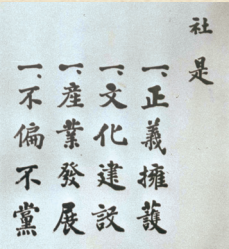 社是
一、正義擁護
一、文化建設
一、産業發展
一、不偏不黨